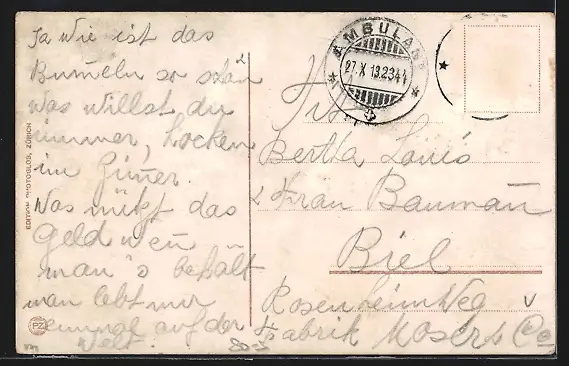 Ja wie ist das
Bum̅eln so schön
was willst du
immer, hocken
im Zim̅er.
Was nützt das
Geld wen̅
man's behält
man lebt nur
einmal auf der
Welt.
EDITION PHOTOGLOB, ZÜRICH
PZ
AMBULANT
27.X.13.23
Bertha Louis
Frau Bauman̅
Biel
Rosenheimweg
Fabrik Moser & Co